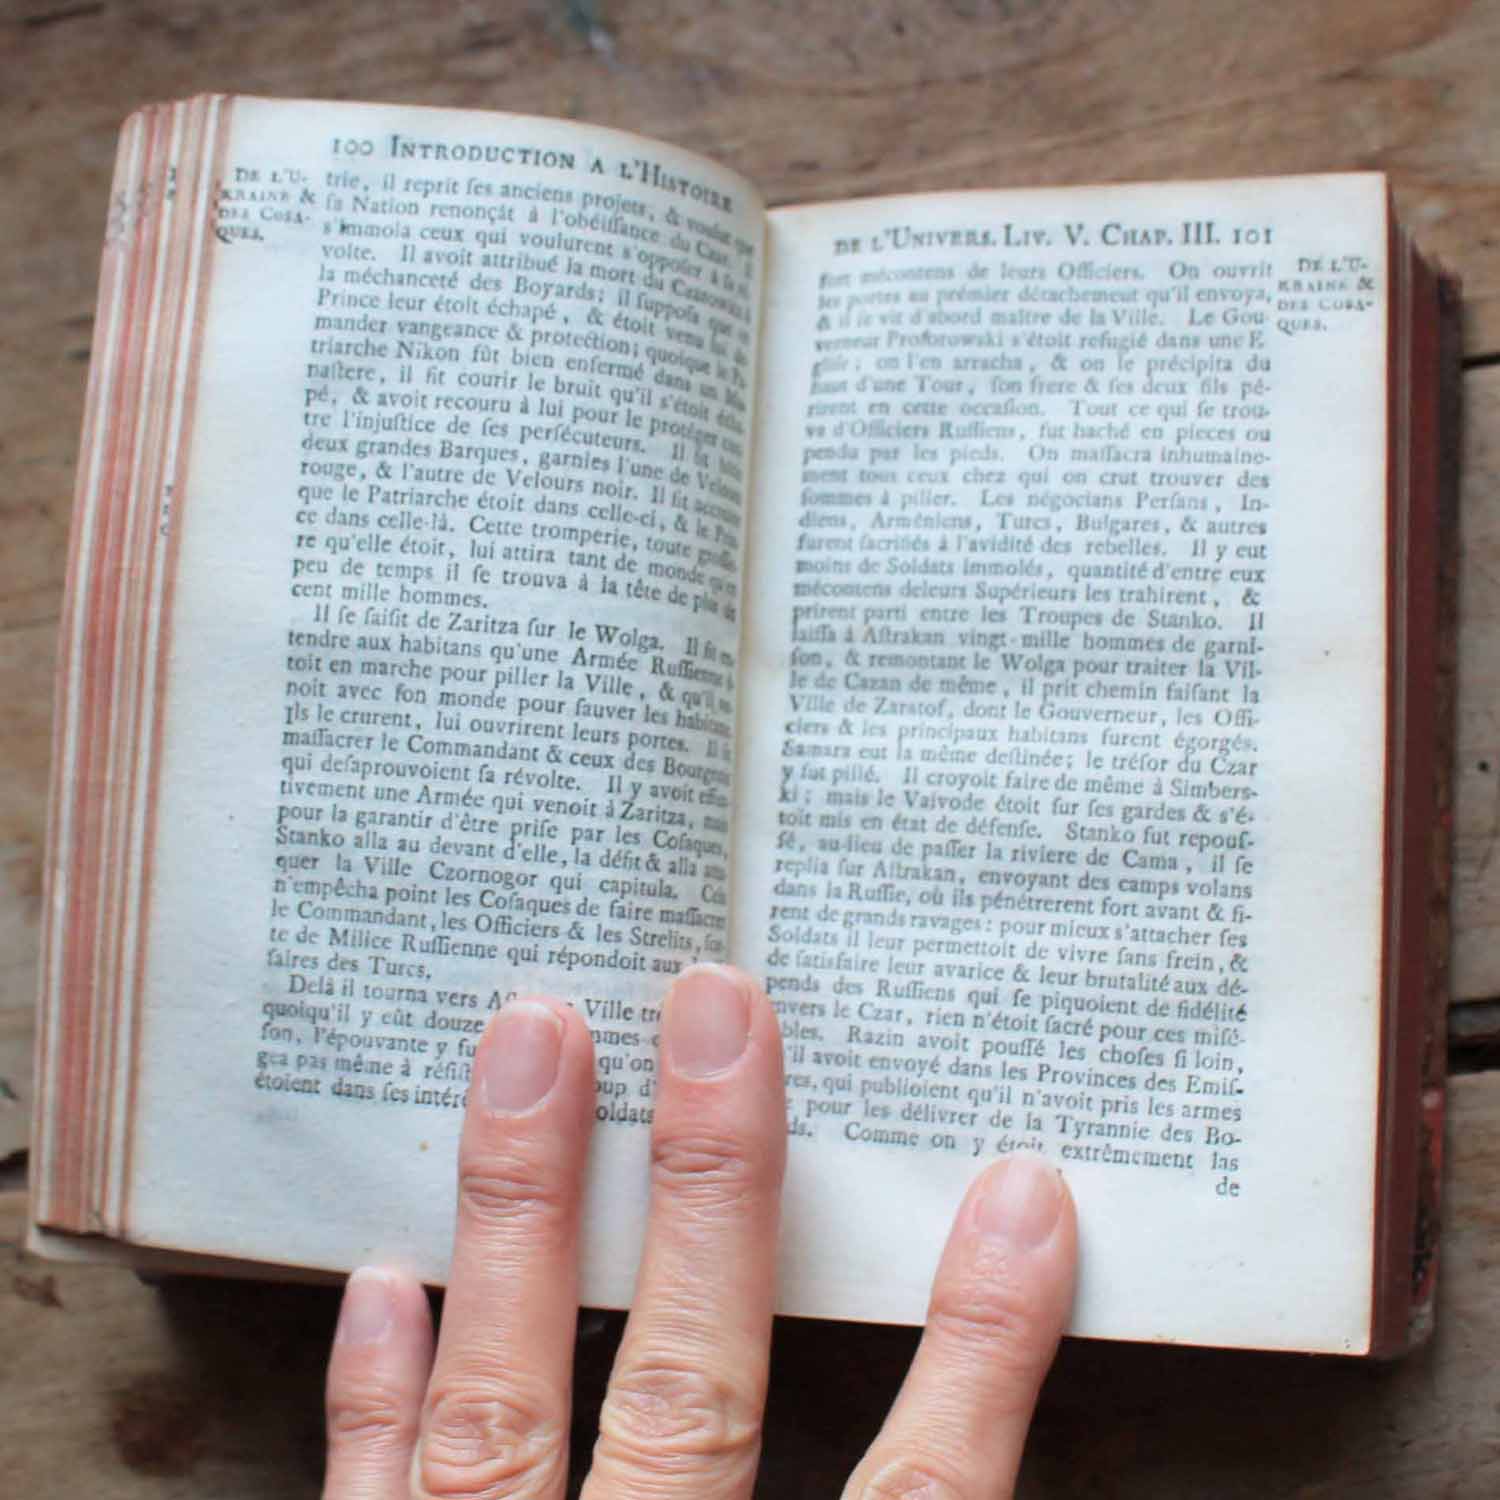 100 INTRODUCTION A L'HISTOIRE
DE L'U-
KRAINE &
DES COSA-
QUES.
trie, il reprit ſes anciens projets, & voulut que
ſa Nation renonçât à l'obéiſſance du Czar. Il
s'immola ceux qui voulurent s'oppoſer à ſa ré-
volte. Il avoit attribué la mort du Czarowitz à
la méchanceté des Boyards; il ſuppoſa que ce
Prince leur étoit échapé, & étoit venu lui de-
mander vangeance & protection; quoique le Pa-
triarche Nikon fût bien enfermé dans un Mo-
naſtere, il fit courir le bruit qu'il s'étoit écha-
pé, & avoit recouru à lui pour le protéger con-
tre l'injuſtice de ſes perſécuteurs. Il fit bâtir
deux grandes Barques, garnies l'une de Velours
rouge, & l'autre de Velours noir. Il fit accroire
que le Patriarche étoit dans celle-ci, & le Prin-
ce dans celle-là. Cette tromperie, toute groſſie-
re qu'elle étoit, lui attira tant de monde qu'en
peu de temps il ſe trouva à la tête de plus de
cent mille hommes.
Il ſe ſaiſit de Zaritza ſur le Wolga. Il fit en-
tendre aux habitans qu'une Armée Ruſſienne é-
toit en marche pour piller la Ville, & qu'il ve-
noit avec ſon monde pour ſauver les habitans.
Ils le crurent, lui ouvrirent leurs portes. Il fit
maſſacrer le Commandant & ceux des Bourgeois
qui deſaprouvoient ſa révolte. Il y avoit effec-
tivement une Armée qui venoit à Zaritza, mais
pour la garantir d'être priſe par les Coſaques,
Stanko alla au devant d'elle, la défit & alla atta-
quer la Ville Czornogor qui capitula. Cela
n'empêcha point les Coſaques de faire maſſacrer
le Commandant, les Officiers & les Strelits, ſor-
te de Milice Ruſſienne qui répondoit aux
faires des Turcs.
Delà il tourna vers Ville
quoiqu'il y eût douze
ſon, l'épouvante y qu'on
gea pas même à d'
étoient dans ſes
DE L'UNIVERS. LIV. V. CHAP. III. 101
DE L'U-
KRAINE &
DES COSA-
QUES.
fort mécontens de leurs Officiers. On ouvrit
les portes au prémier détachemeut qu'il envoya,
& il ſe vit d'abord maître de la Ville. Le Gou-
verneur Proforowski s'étoit refugié dans une E-
gliſe; on l'en arracha, & on le précipita du
haut d'une Tour, ſon frere & ſes deux fils pé-
rirent en cette occaſion. Tout ce qui ſe trou-
va d'Officiers Ruſſiens, fut haché en pieces ou
pendu par les pieds. On maſſacra inhumaine-
ment tous ceux chez qui on crut trouver des
ſommes à piller. Les négocians Perſans, In-
diens, Arméniens, Turcs, Bulgares, & autres
furent ſacrifiés à l'avidité des rebelles. Il y eut
moins de Soldats immolés, quantité d'entre eux
mécontens deleurs Supérieurs les trahirent, &
prirent parti entre les Troupes de Stanko. Il
laiſſa à Aſtrakan vingt-mille hommes de garni-
ſon, & remontant le Wolga pour traiter la Vil-
le de Cazan de même, il prit chemin faiſant la
Ville de Zaratof, dont le Gouverneur, les Offi-
ciers & les principaux habitans furent égorgés.
Samara eut la même deſtinée; le tréſor du Czar
y fut pillé. Il croyoit faire de même à Simbers-
ki; mais le Vaivode étoit ſur ſes gardes & s'é-
toit mis en état de défenſe. Stanko fut repouſ-
ſé, au-lieu de paſſer la riviere de Cama, il ſe
replia ſur Aſtrakan, envoyant des camps volans
dans la Ruſſie, où ils pénétrerent fort avant & fi-
rent de grands ravages: pour mieux s'attacher ſes
Soldats il leur permettoit de vivre ſans frein, &
de ſatisfaire leur avarice & leur brutalité aux dé-
pends des Ruſſiens qui ſe piquoient de fidélité
envers le Czar, rien n'étoit ſacré pour ces miſé-
Razin avoit pouſſé les choſes ſi loin,
qu'il avoit envoyé dans les Provinces des Emiſ-
qui publioient qu'il n'avoit pris les armes
pour les délivrer de la Tyrannie des Bo-
Comme on y étoit extrêmement las
de